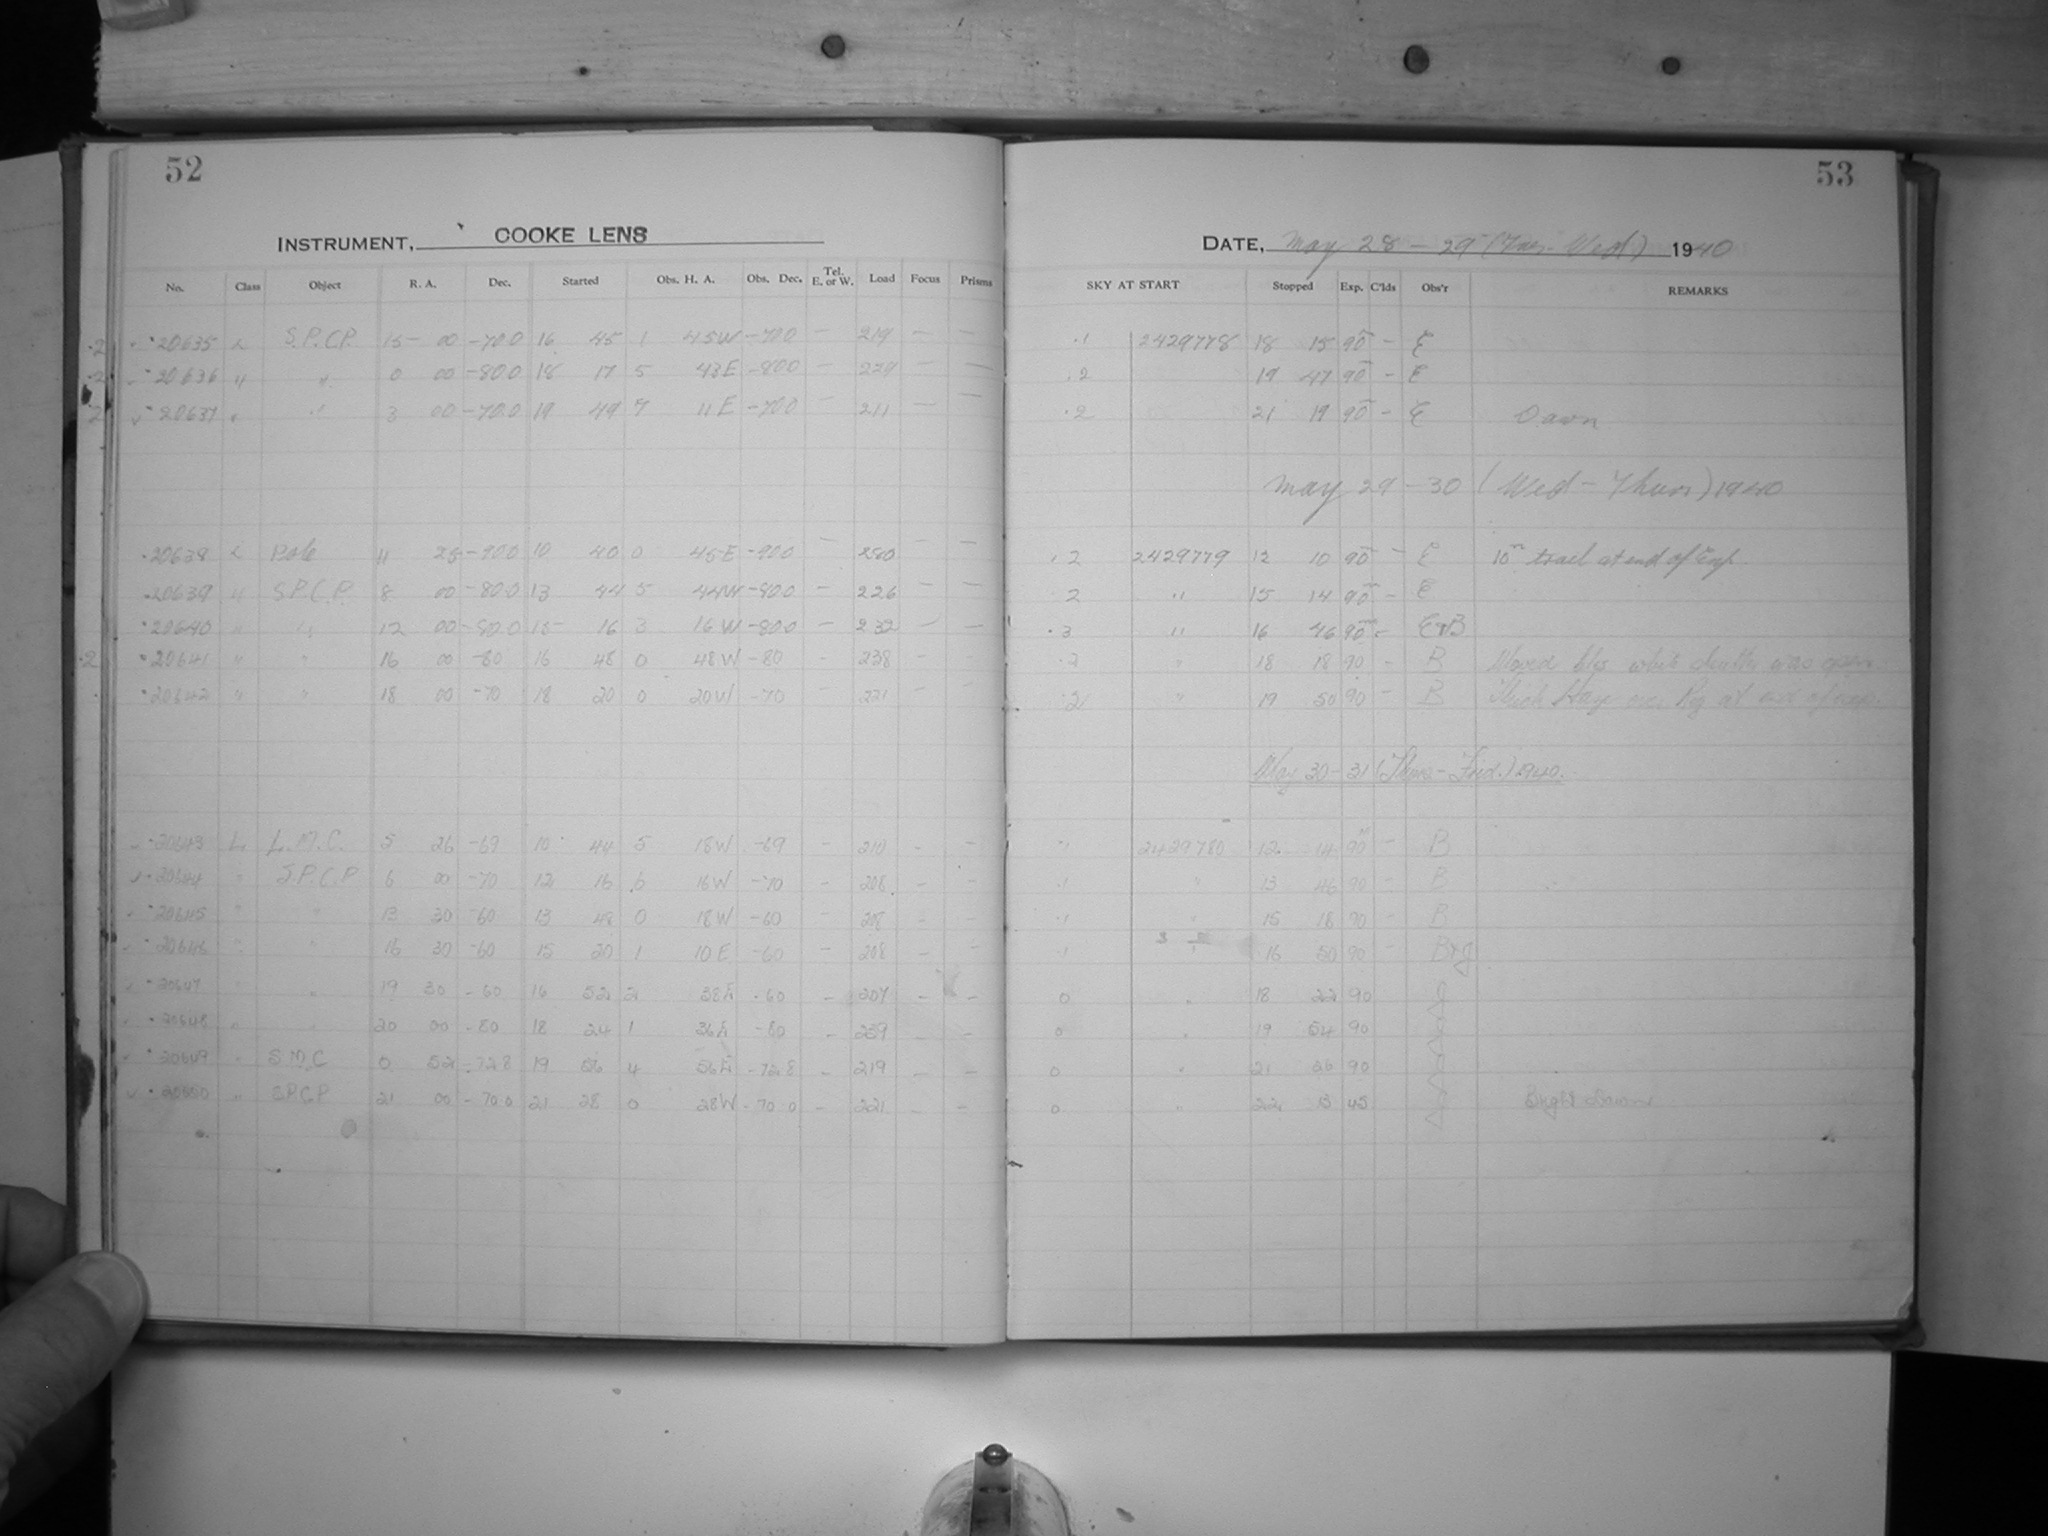 52
INSTRUMENT, COOKE LENS
No. Class Object R. A. Dec. Started Obs. H. A. Obs. Dec. Tel. E. or W. Load Focus Prisms
·2 20635 L S.P.C.P. 15 00 -70.0 16 45 1 45W -70.0 — 219 — —
·2 20636 " " 0 00 -80.0 18 17 5 43E -80.0 — 229 — —
2 20637 " " 3 00 -70.0 19 49 7 11E -70.0 — 211 — —
20638 L Pole 11 25 -90.0 10 40 0 45E -90.0 — 250 — —
20639 " S.P.C.P. 8 00 -80.0 13 44 5 44W -80.0 — 226 — —
20640 " " 12 00 -80.0 15 16 3 16W -80.0 — 232 — —
·2 20641 " " 16 00 -80 16 48 0 48W -80 - 238 - -
20642 " " 18 00 -70 18 20 0 20W -70 - 221 - -
20643 L L.M.C. 5 26 -69 10 44 5 18W -69 - 210 - -
20644 " S.P.C.P 6 00 -70 12 16 6 16W -70 - 208 - -
20645 " " 13 30 -60 13 48 0 18W -60 - 208 - -
20646 " " 16 30 -60 15 20 1 10E -60 - 208 - -
20647 " " 19 30 -60 16 52 2 38E -60 - 207 - -
20648 " " 20 00 -80 18 24 1 36E -80 - 239 -
20649 " S.M.C 0 52 -72.8 19 56 4 56E -72.8 - 219 - -
20650 " SPCP 21 00 -70.0 21 28 0 28W -70.0 - 221 - -
53
DATE, May 28 - 29 (Tues - Wed) 1940
SKY AT START Stopped Exp. C'lds Obs'r REMARKS
·1 2429778 18 15 90m - E
·2 19 47 90m - E
·2 21 19 90m - E Dawn
May 29 - 30 (Wed - Thurs) 1940
·2 2429779 12 10 90m - E 10m trail at end of Exp.
·2 " 15 14 90m - E
·3 " 16 46 90m - E+B
·2 " 18 18 90 - B Moved while shutter was open.
·2 " 19 50 90 - B Thick Haze over Reg at end of exp.
May 30 - 31 (Thurs - Frid.) 1940.
·1 2429780 12 14 90m - B
·1 " 13 46 90 - B
·1 " 15 18 90 - B
·1 16 50 90 - B+J
0 " 18 22 90 J
0 " 19 54 90 J
0 " 21 26 90 J
0 " 22 13 45 J Bright Dawn